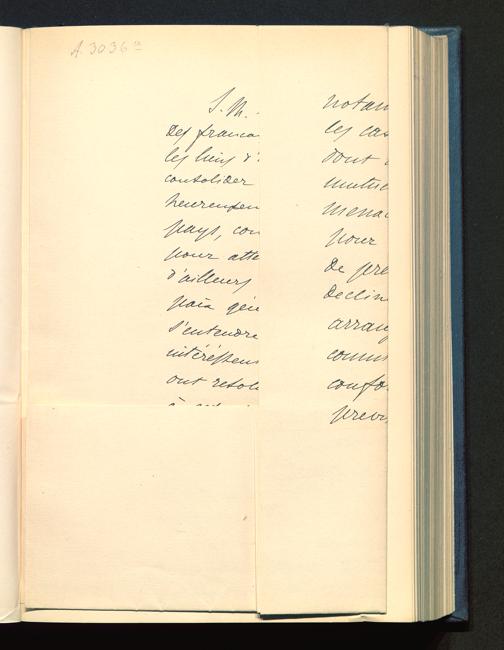 A. 3036 a
S. M.
des frança
les liens d'
consolider
heureusem
pays, con
pour atte
d'ailleurs
paix gén
s'entendre
intéressen
ont résol
notam
les cas
dont
mutue
menac
pour
de pre
déclin
arran
comm
confo
prévu